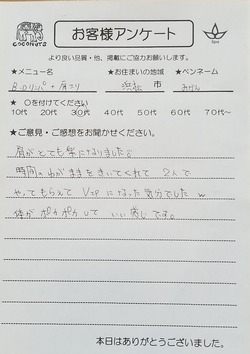 COCONUTS
お客様アンケート
Spa
より良い品質・他、掲載にご協力お願いします。
★メニュー名 ★お住まいの地域 ★ペンネーム
肩コリ 浜松 市 みかん
★ ○を付けてください
10代 20代 30代 40代 50代 60代 70代~
★ご意見・ご感想をお聞かせください。
肩がとても楽になりました
時間のわがままをきいてくれて 2人で
やってもらえて VIPになった気分でした w
体がポカポカして いい感じです。
本日はありがとうございました。